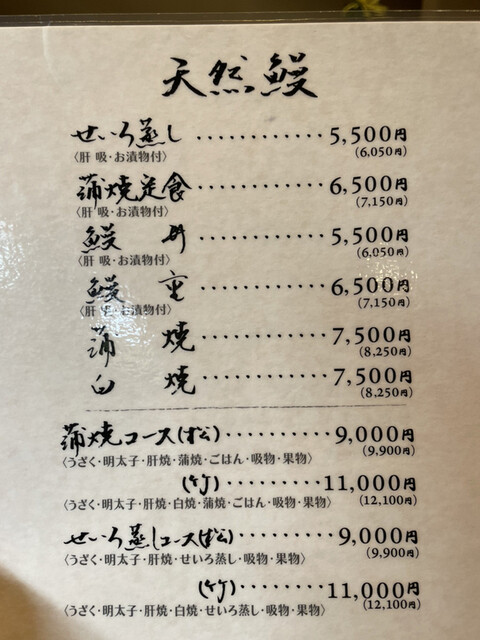 天然鰻
せいろ蒸し････････････5,500円
〈肝吸･お漬物付〉 (6,050円)
蒲焼定食････････････6,500円
〈肝吸･お漬物付〉 (7,150円)
鰻丼････････････5,500円
〈肝吸･お漬物付〉 (6,050円)
鰻重････････････6,500円
〈肝吸･お漬物付〉 (7,150円)
蒲焼････････････7,500円
(8,250円)
白焼････････････7,500円
(8,250円)
蒲焼コース(松)･･････････9,000円
〈うざく･明太子･肝焼･蒲焼･ごはん･吸物･果物〉 (9,900円)
(竹)･････････11,000円
〈うざく･明太子･肝焼･白焼･蒲焼･ごはん･吸物･果物〉 (12,100円)
せいろ蒸しコース(松)･････････9,000円
〈うざく･明太子･肝焼･せいろ蒸し･吸物･果物〉 (9,900円)
(竹)････････11,000円
〈うざく･明太子･肝焼･白焼･せいろ蒸し･吸物･果物〉 (12,100円)